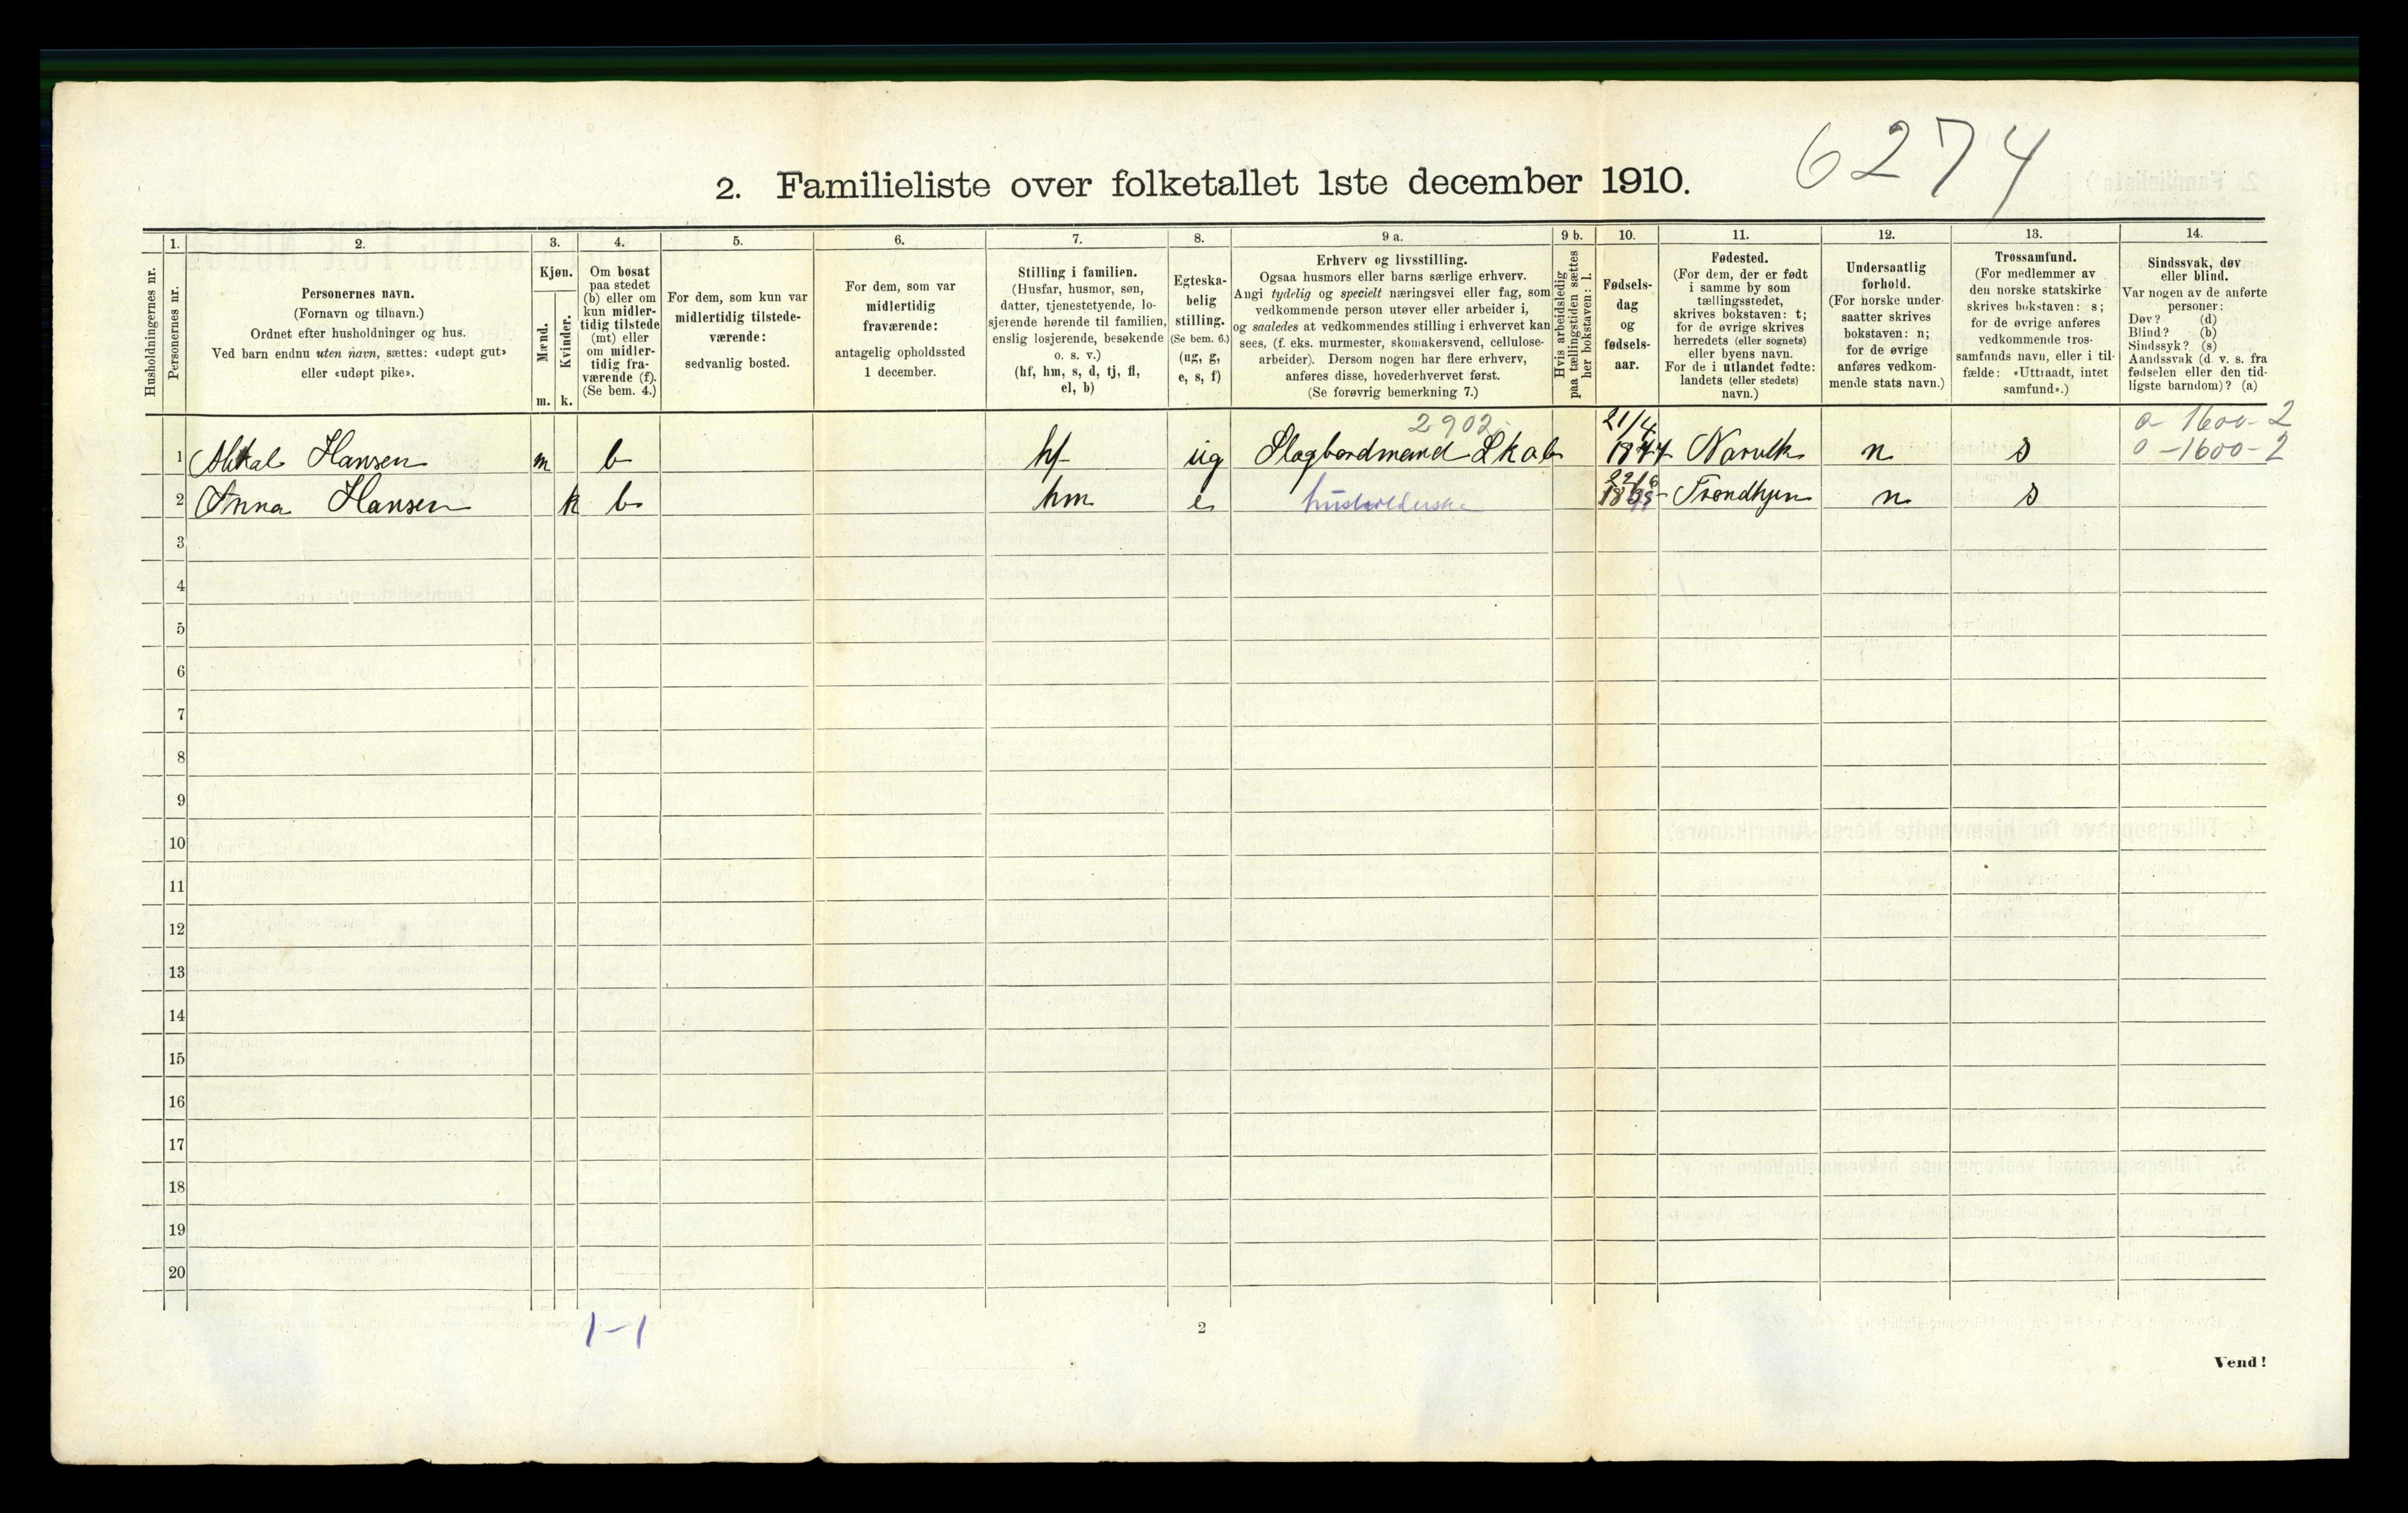 6274
2. Familieliste over folketallet 1ste december 1910.
Husholdningernes nr.
1.
Personernes nr.
2.
Personernes navn.
(Fornavn og tilnavn.)
Ordnet efter husholdninger og hus.
Ved barn endnu uten navn, sættes: «udøpt gut»
eller «udøpt pike».
3.
Kjøn.
Mænd.
Kvinder.
m. k.
4.
Om bosat
paa stedet
(b) eller om
kun midler-
tidig tilstede
(mt) eller
om midler-
tidig fra-
værende (f).
(Se bem. 4.)
5.
For dem, som kun var
midlertidig tilstede-
værende:
sedvanlig bosted.
6.
For dem, som var
midlertidig
fraværende:
antagelig opholdssted
1 december.
7.
Stilling i familien.
(Husfar, husmor, søn,
datter, tjenestetyende, lo-
sjerende hørende til familien,
enslig losjerende, besøkende
o. s. v.)
(hf, hm, s, d, tj, fl,
el, b)
8.
Egteska-
belig
stilling.
(Se bem. 6.)
(ug, g,
e, s, f)
9 a.
Erhverv og livsstilling.
Ogsaa husmors eller barns særlige erhverv.
Angi tydelig og specielt næringsvei eller fag, som
vedkommende person utøver eller arbeider i,
og saaledes at vedkommendes stilling i erhvervet kan
sees, (f. eks. murmester, skomakersvend, cellulose-
arbeider). Dersom nogen har flere erhverv,
anføres disse, hovederhvervet først.
(Se forøvrig bemerkning 7.)
9 b.
Hvis arbeidsledig
paa tællingstiden sættes
her bokstaven: l.
10.
Fødsels-
dag
og
fødsels-
aar.
11.
Fødested.
(For dem, der er født
i samme by som
tællingsstedet,
skrives bokstaven: t;
for de øvrige skrives
herredets (eller sognets)
eller byens navn.
For de i utlandet fødte:
landets (eller stedets)
navn.)
12.
Undersaatlig
forhold.
(For norske under-
saatter skrives
bokstaven: n;
for de øvrige
anføres vedkom-
mende stats navn.)
13.
Trossamfund.
(For medlemmer av
den norske statskirke
skrives bokstaven: s;
for de øvrige anføres
vedkommende tros-
samfunds navn, eller i til-
fælde: «Uttraadt, intet
samfund».)
14.
Sindssvak, døv
eller blind.
Var nogen av de anførte
personer:
Døv? (d)
Blind? (b)
Sindssyk? (s)
Aandssvak (d. v. s. fra
fødselen eller den tid-
ligste barndom)? (a)
2902 21/4 0-1600-2
1 Hansen m b hf ug Slagbordmand Skab n s 0-1600-2
2 Anna Hansen k b hm e husholderske Trondhjem n s
3
4
5
6
7
8
9
10
11
12
13
14
15
16
17
18
19
20
1-1
2
Vend!